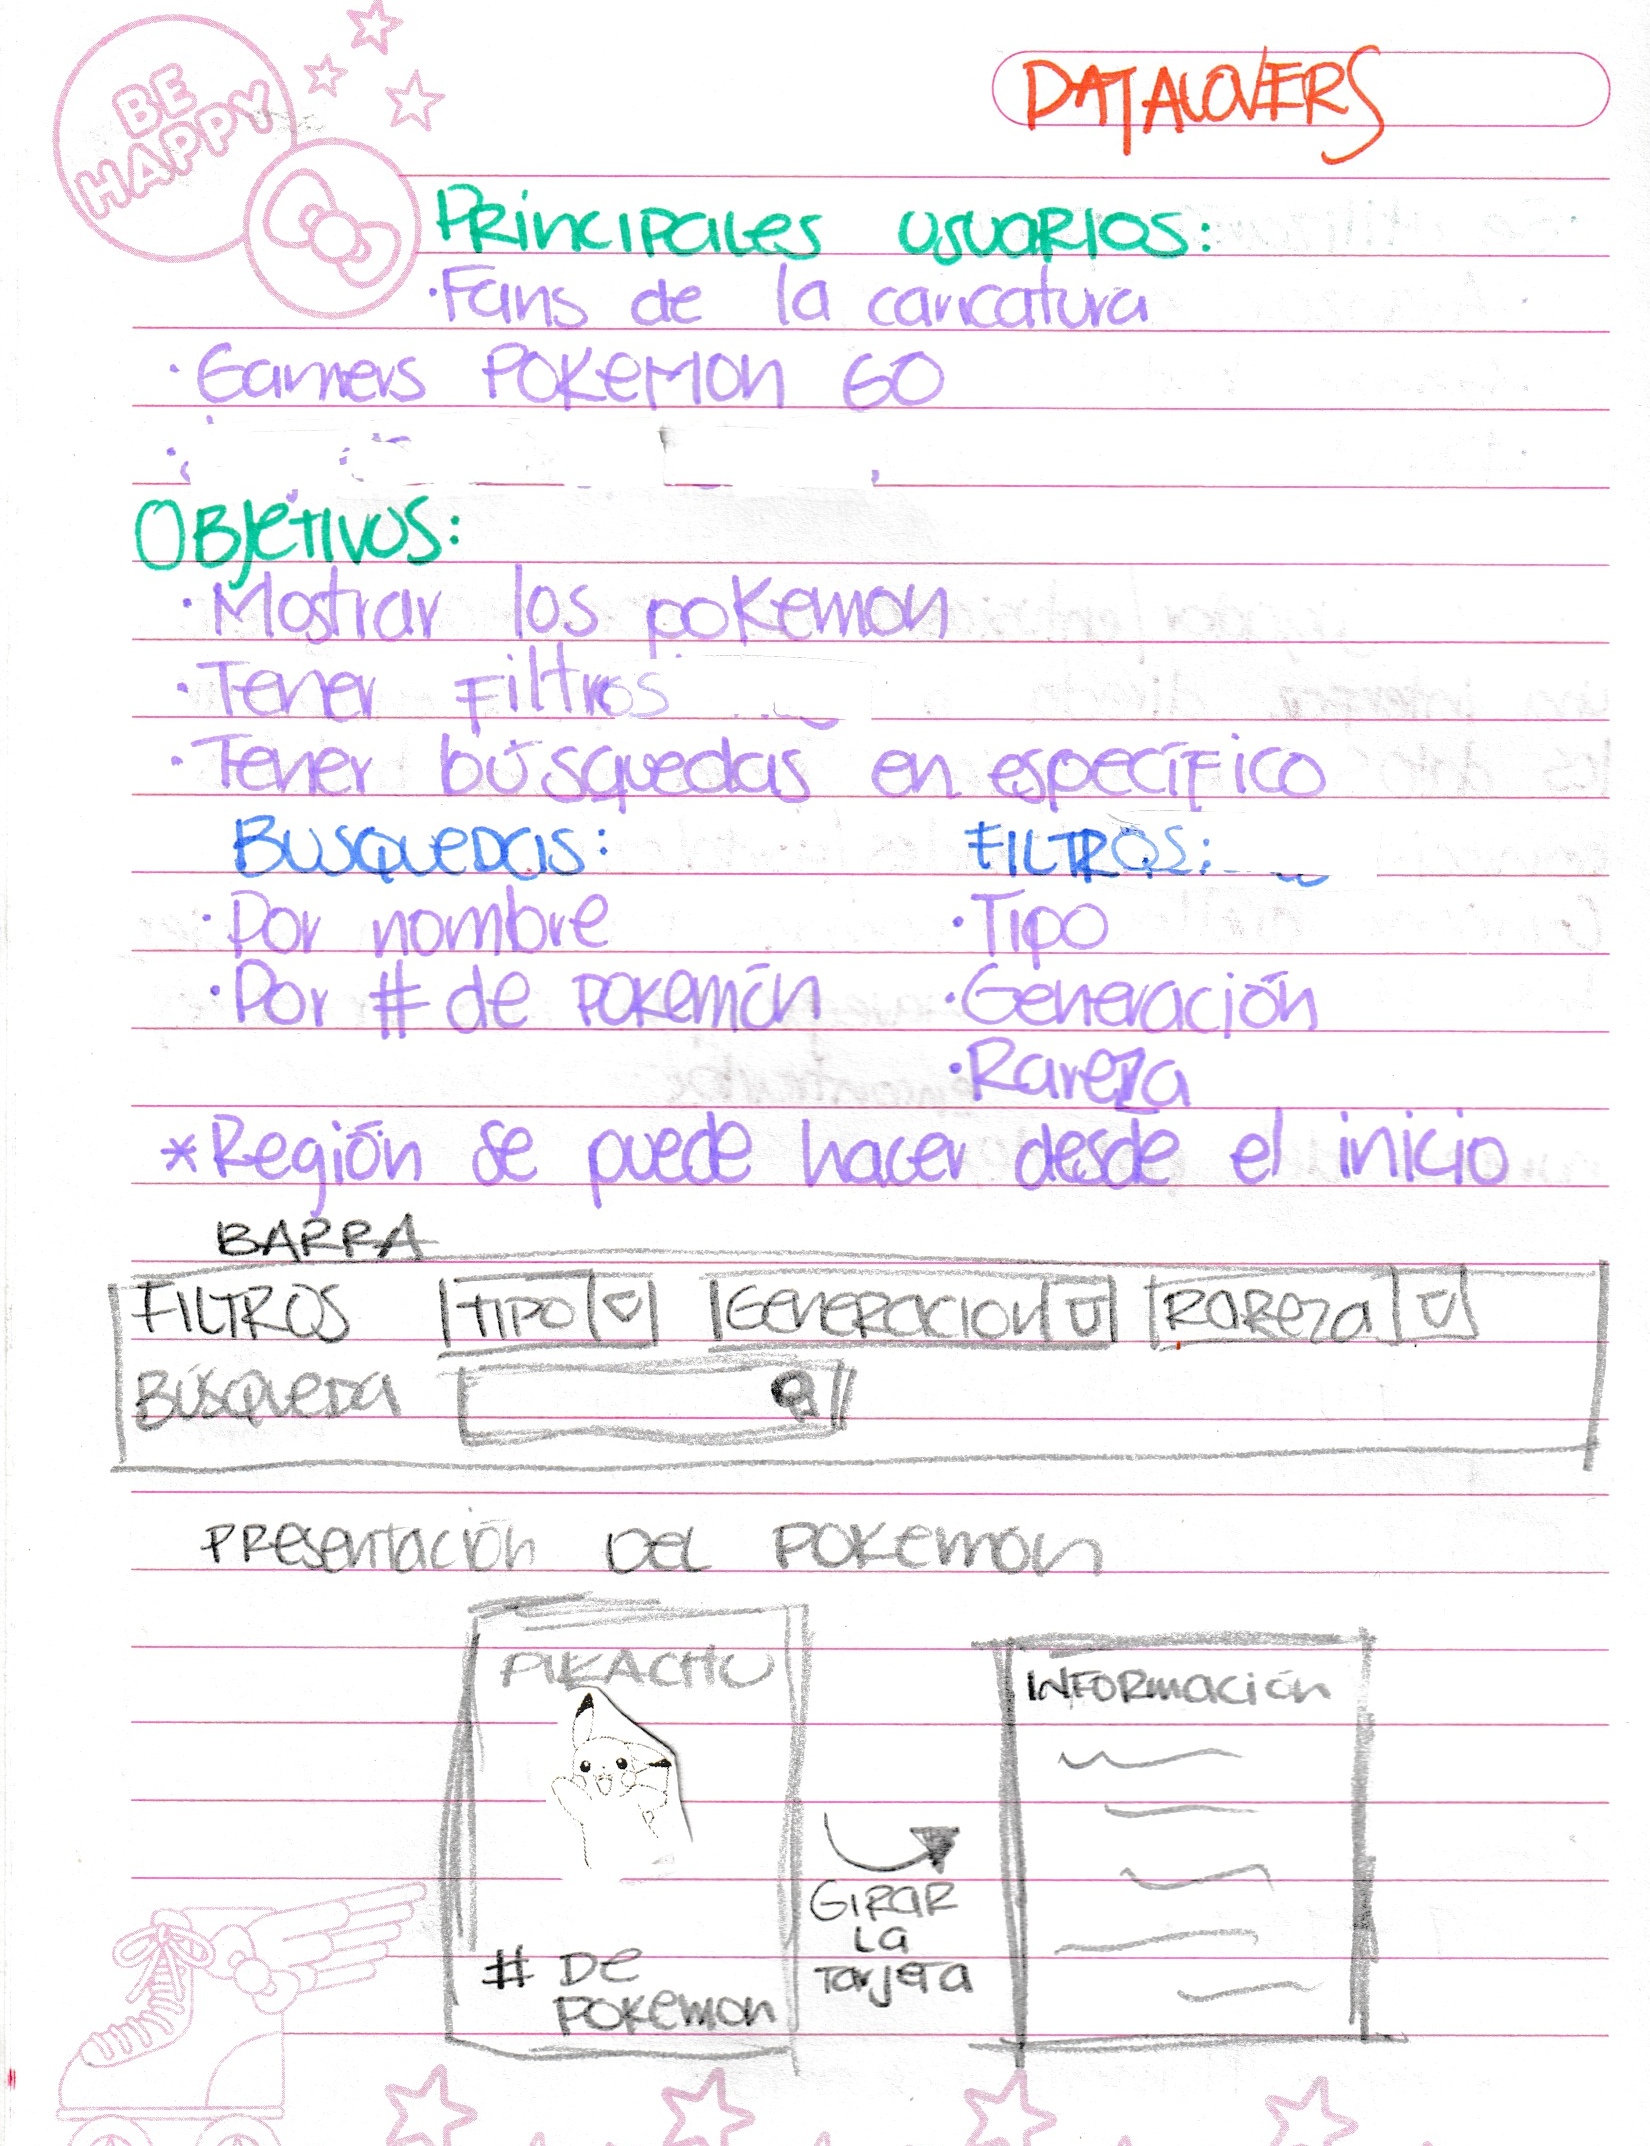 BE
HAPPY
DATALOVERS
PRINCIPALES USUARIOS:
·Fans de la caricatura
·Gamers POKEMON GO
OBJETIVOS:
·Mostrar los pokemon
·Tener Filtros
·Tener búsquedas en específico
BUSQUEDAS: FILTROS:
·Por nombre ·Tipo
·Por # de POKEMÓN ·Generación
·Rareza
*Región se puede hacer desde el inicio
BARRA
FILTROS TIPO GENERACION RAREZA
BÚSQUEDA
PRESENTACIÓN DEL POKEMÓN
PIKACHU INFORMACIÓN
GIRAR
LA
TARJETA
# DE
POKEMON